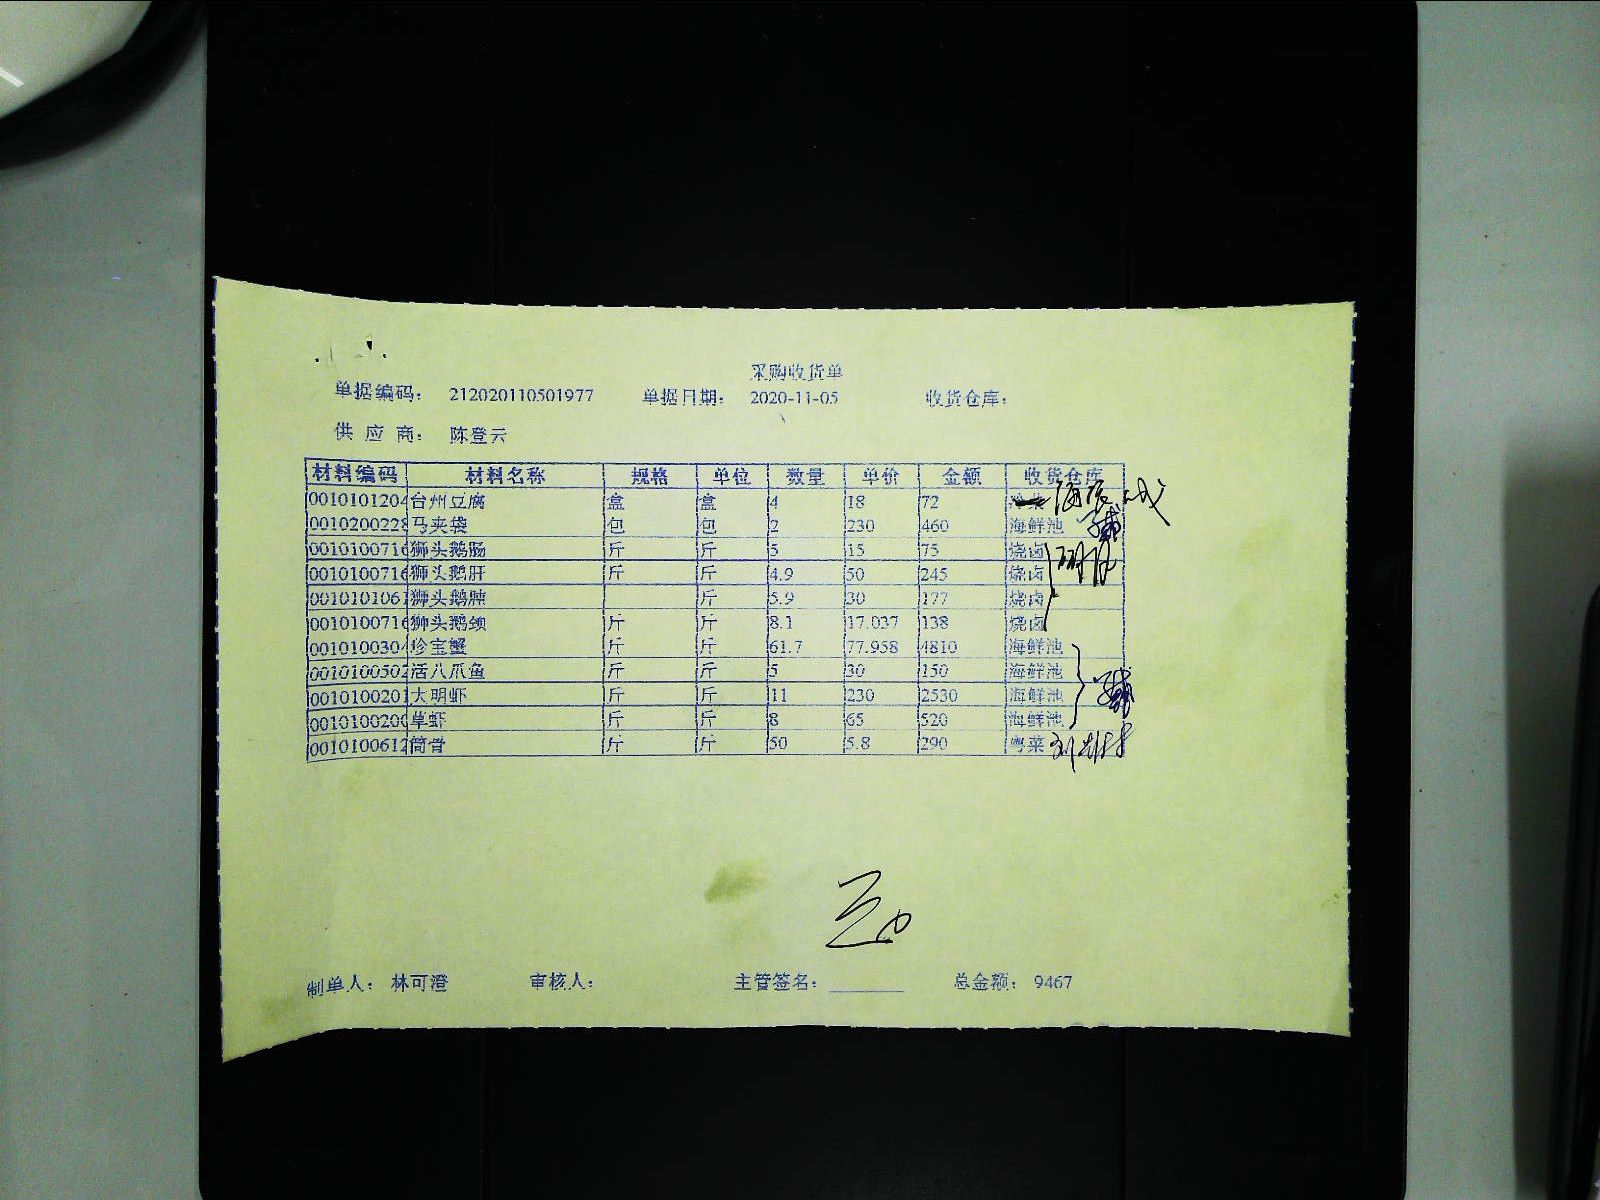 采购收货单
单据编码： 212020110501977 单据日期： 2020-11-05 收货仓库：
供 应 商： 陈登云
材料编码 材料名称 规格 单位 数量 单价 金额 收货仓库
0010101204 台州豆腐 盒 盒 4 18 72
0010200228 马夹袋 包 包 2 230 460 海鲜池
001010071 狮头鹅肠 斤 斤 5 15 75 烧卤
001010071 狮头鹅肝 斤 斤 4.9 50 245 烧卤
001010106 狮头鹅肫 斤 5.9 30 177 烧卤
001010071 狮头鹅颈 斤 斤 8.1 17.037 138 烧卤
001010030 珍宝蟹 斤 斤 61.7 77.958 4810 海鲜池
001010050 活八爪鱼 斤 斤 5 30 150 海鲜池
0010100201 大明虾 斤 斤 11 230 2530 海鲜池
001010020 草虾 斤 斤 8 65 520 海鲜池
001010061 筒骨 斤 斤 50 5.8 290 粤菜
制单人： 林可澄 审核人： 主管签名： 总金额： 9467